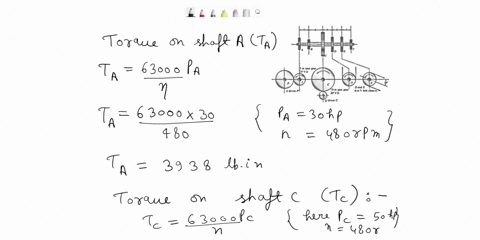 Torque on shaft A (TA)
TA = 63000 PA
n
TA = 63000 x 30
480
{ PA = 30hp
n = 480rpm }
TA = 3938 lb.in
Torque on shaft C (TC) :-
TC = 63000 PC
n
{ here PC = 50hp
n = 480r